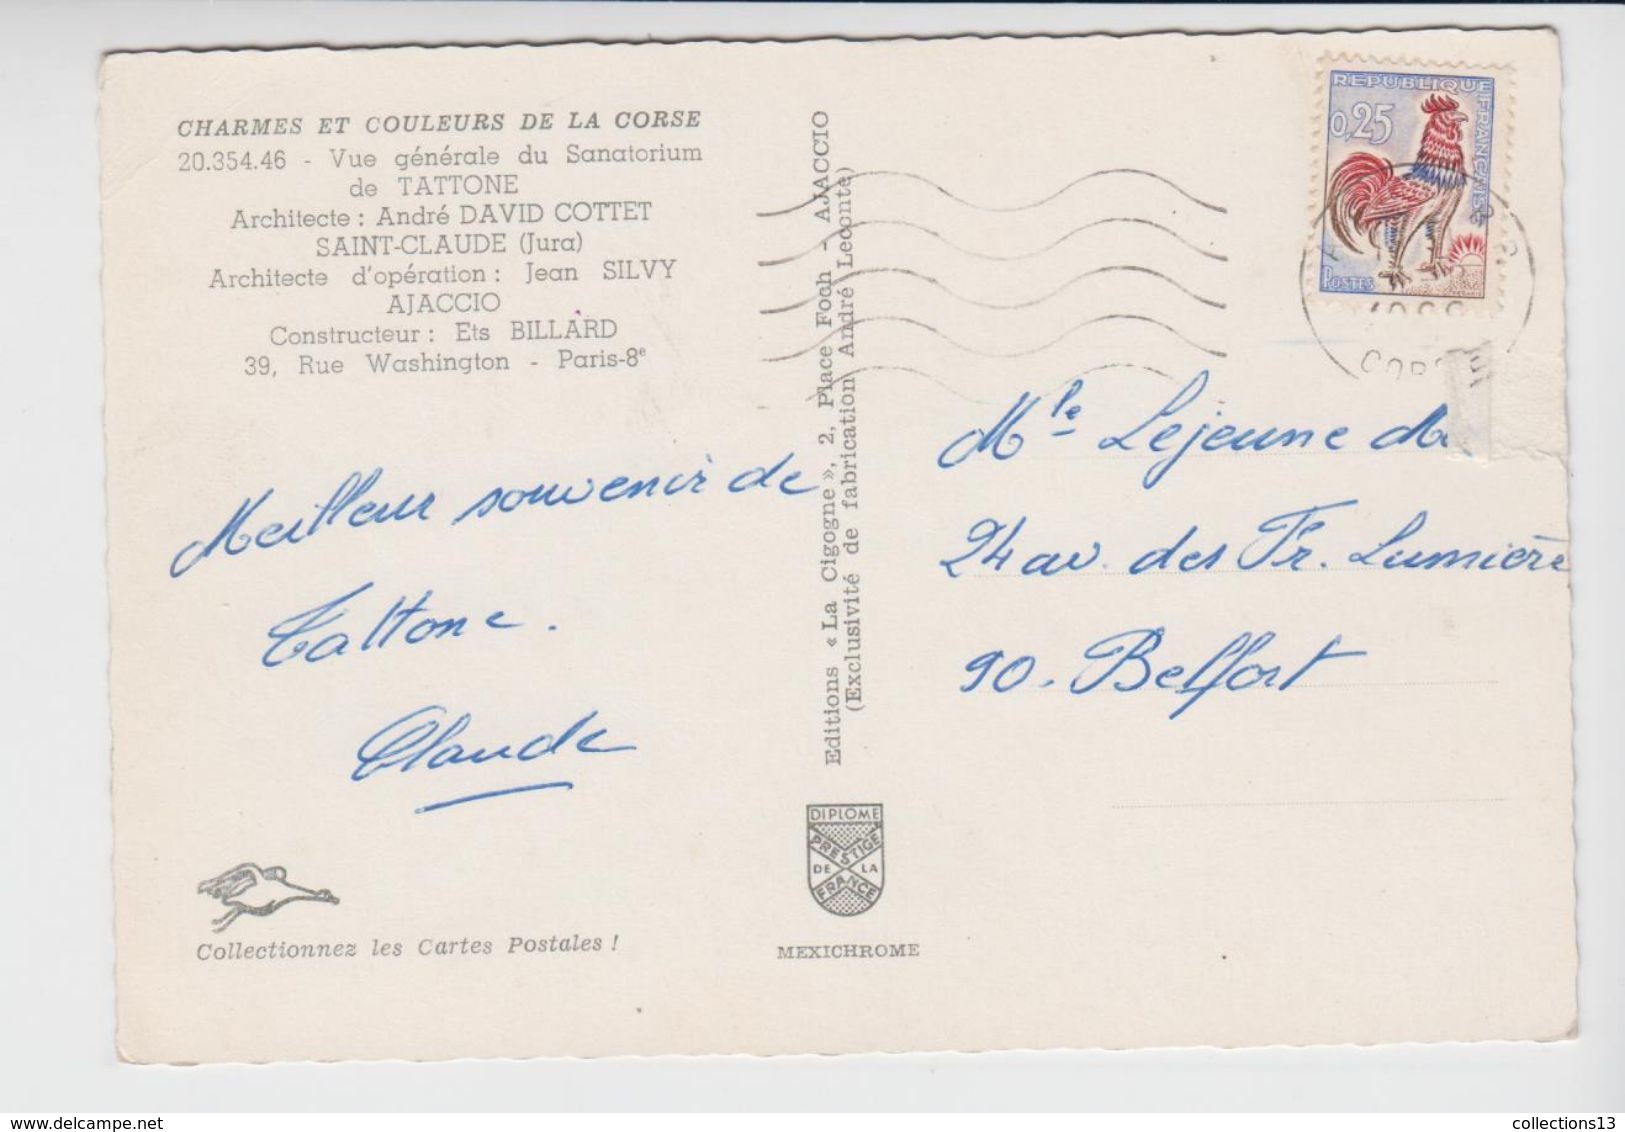 CHARMES ET COULEURS DE LA CORSE
20.354.46 - Vue générale du Sanatorium
de TATTONE
Architecte : André DAVID COTTET
SAINT-CLAUDE (Jura)
Architecte d'opération : Jean SILVY
AJACCIO
Constructeur : Ets BILLARD
39, Rue Washington - Paris-8e
Meilleur souvenir de
Tattone.
Claude
Collectionnez les Cartes Postales !
Editions « La Cigogne », 2, Place Foch - AJACCIO
(Exclusivité de fabrication André Leconte)
DIPLOME
PRESTIGE
DE LA
FRANCE
MEXICHROME
REPUBLIQUE FRANÇAISE
0,25
POSTES
Mlle Lejeune
24 av. des Fr. Lumière
90. Belfort
collections13